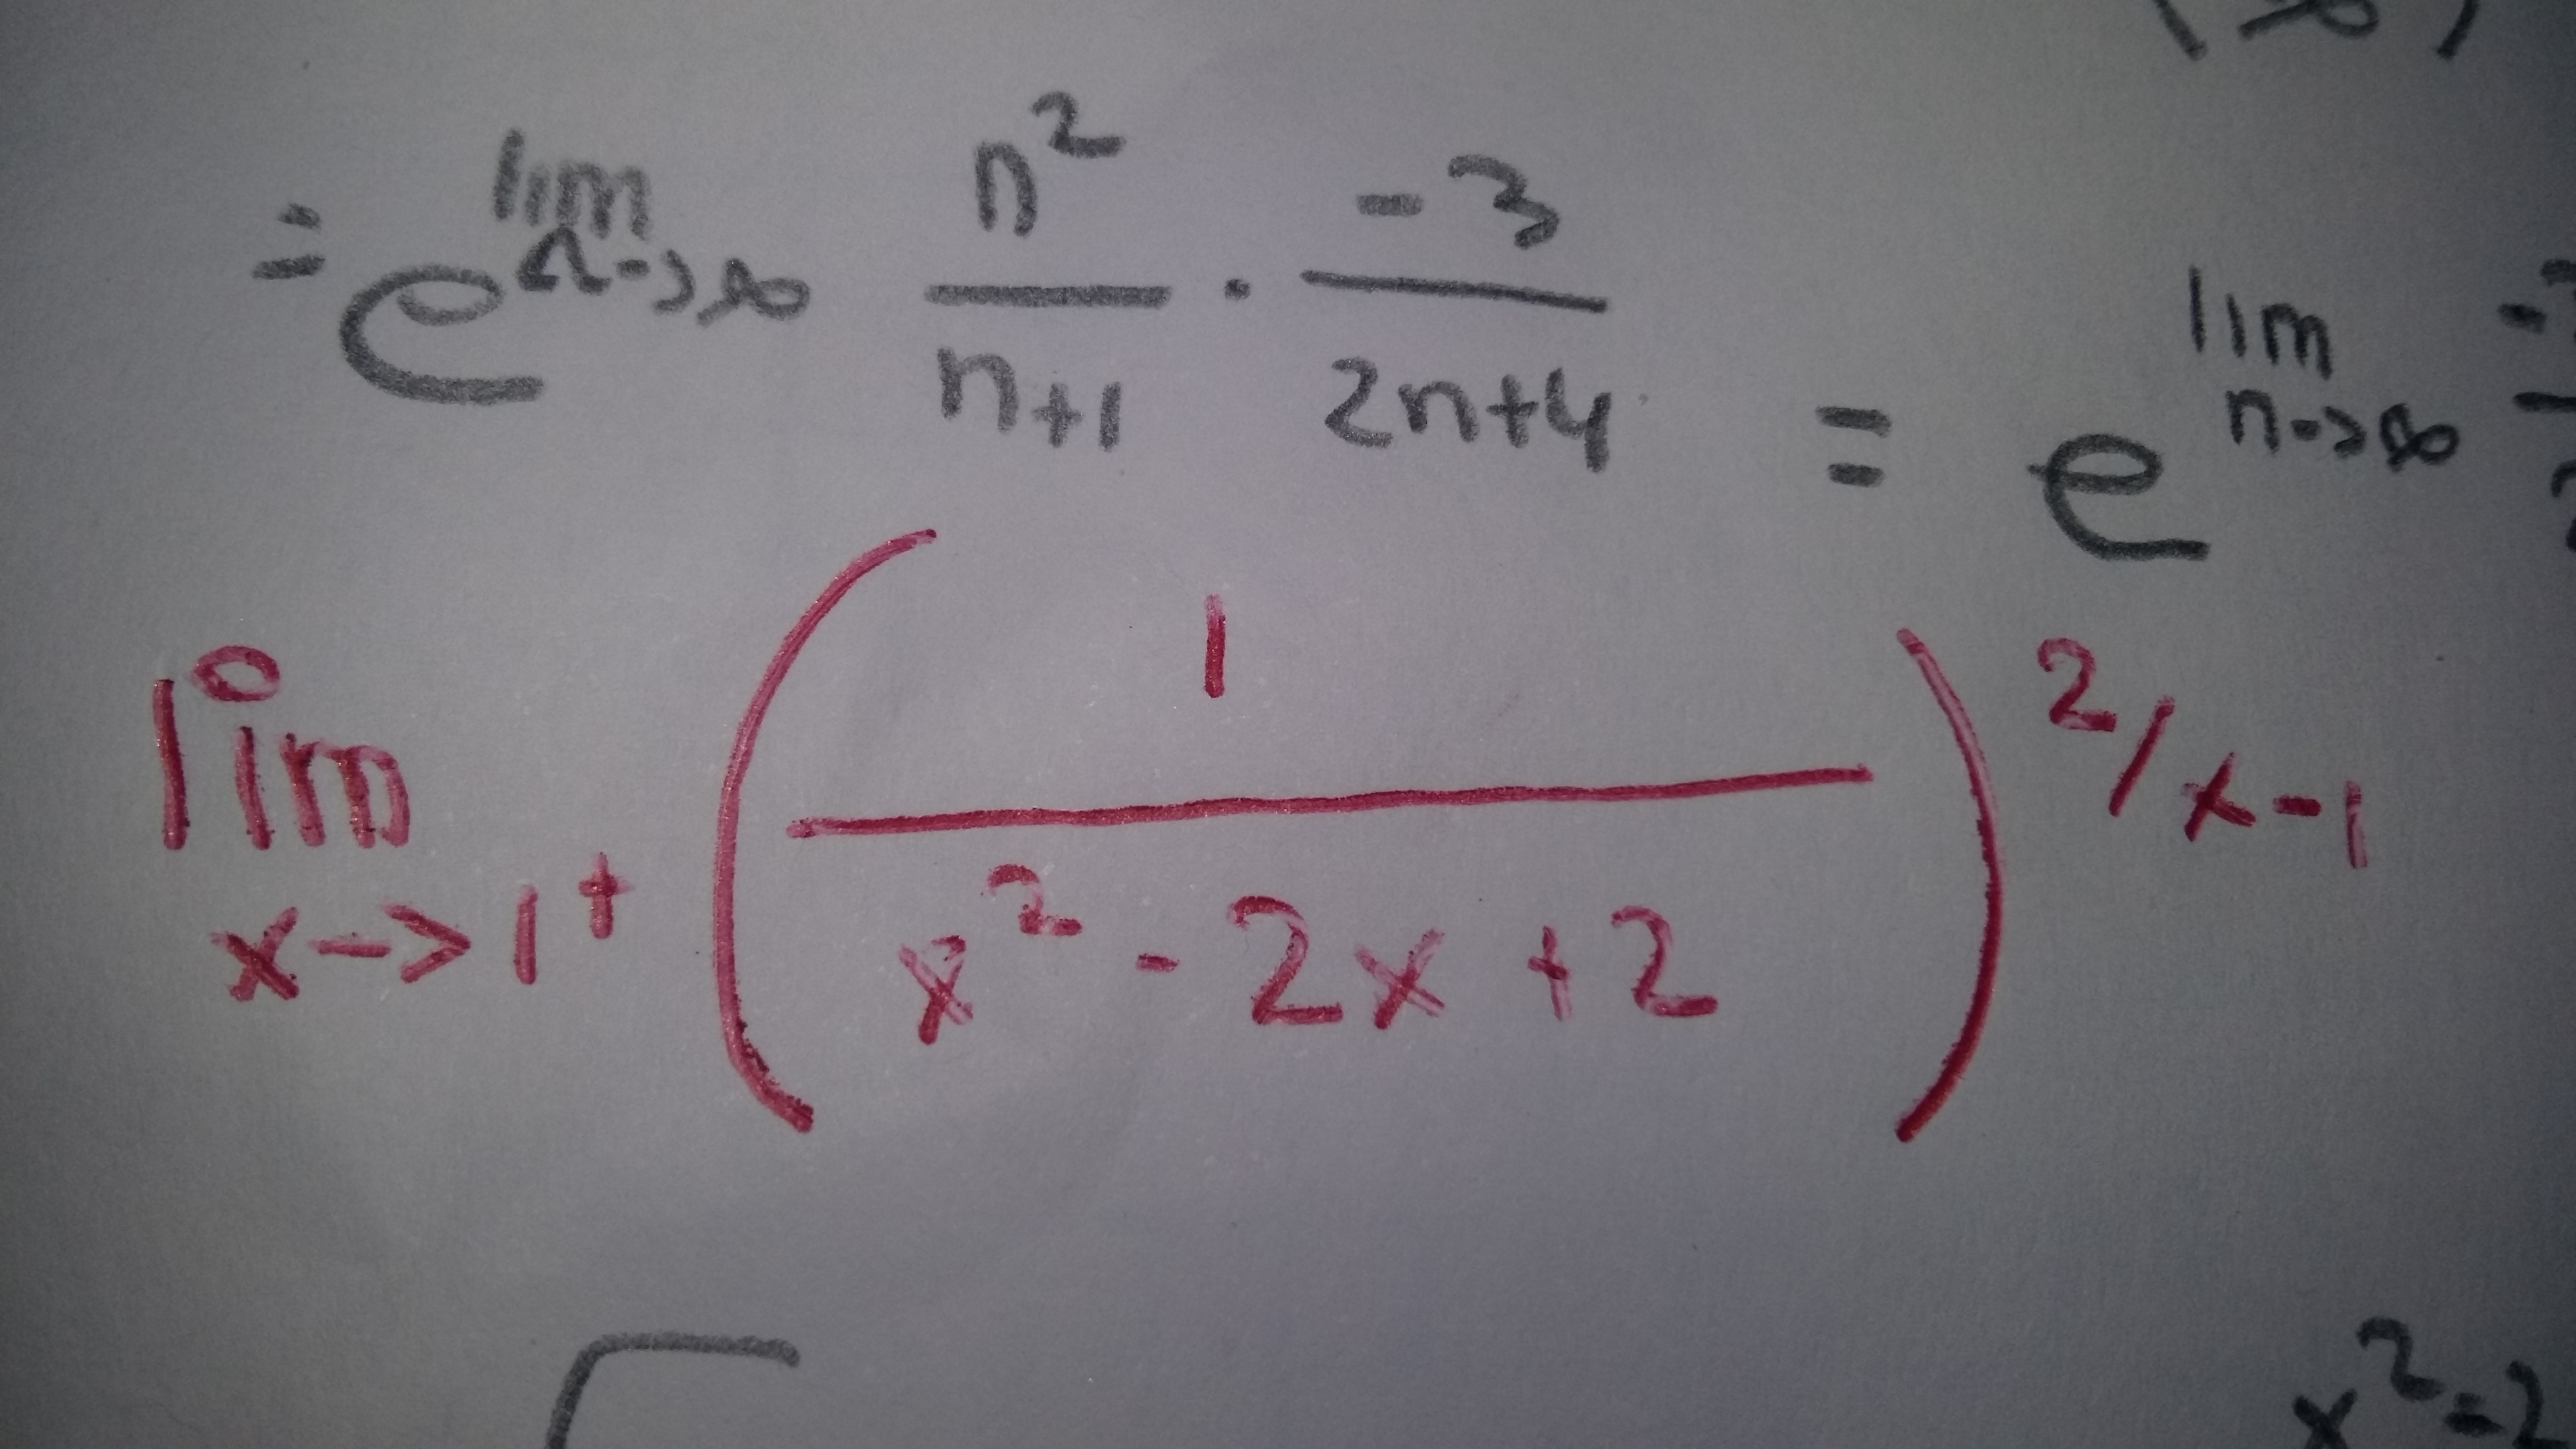 = e^{lim n->∞ n²/(n+1) · -3/(2n+4)} = e^{lim n->∞
lim x->1⁺ (1/(x² - 2x + 2))^{2/x-1}